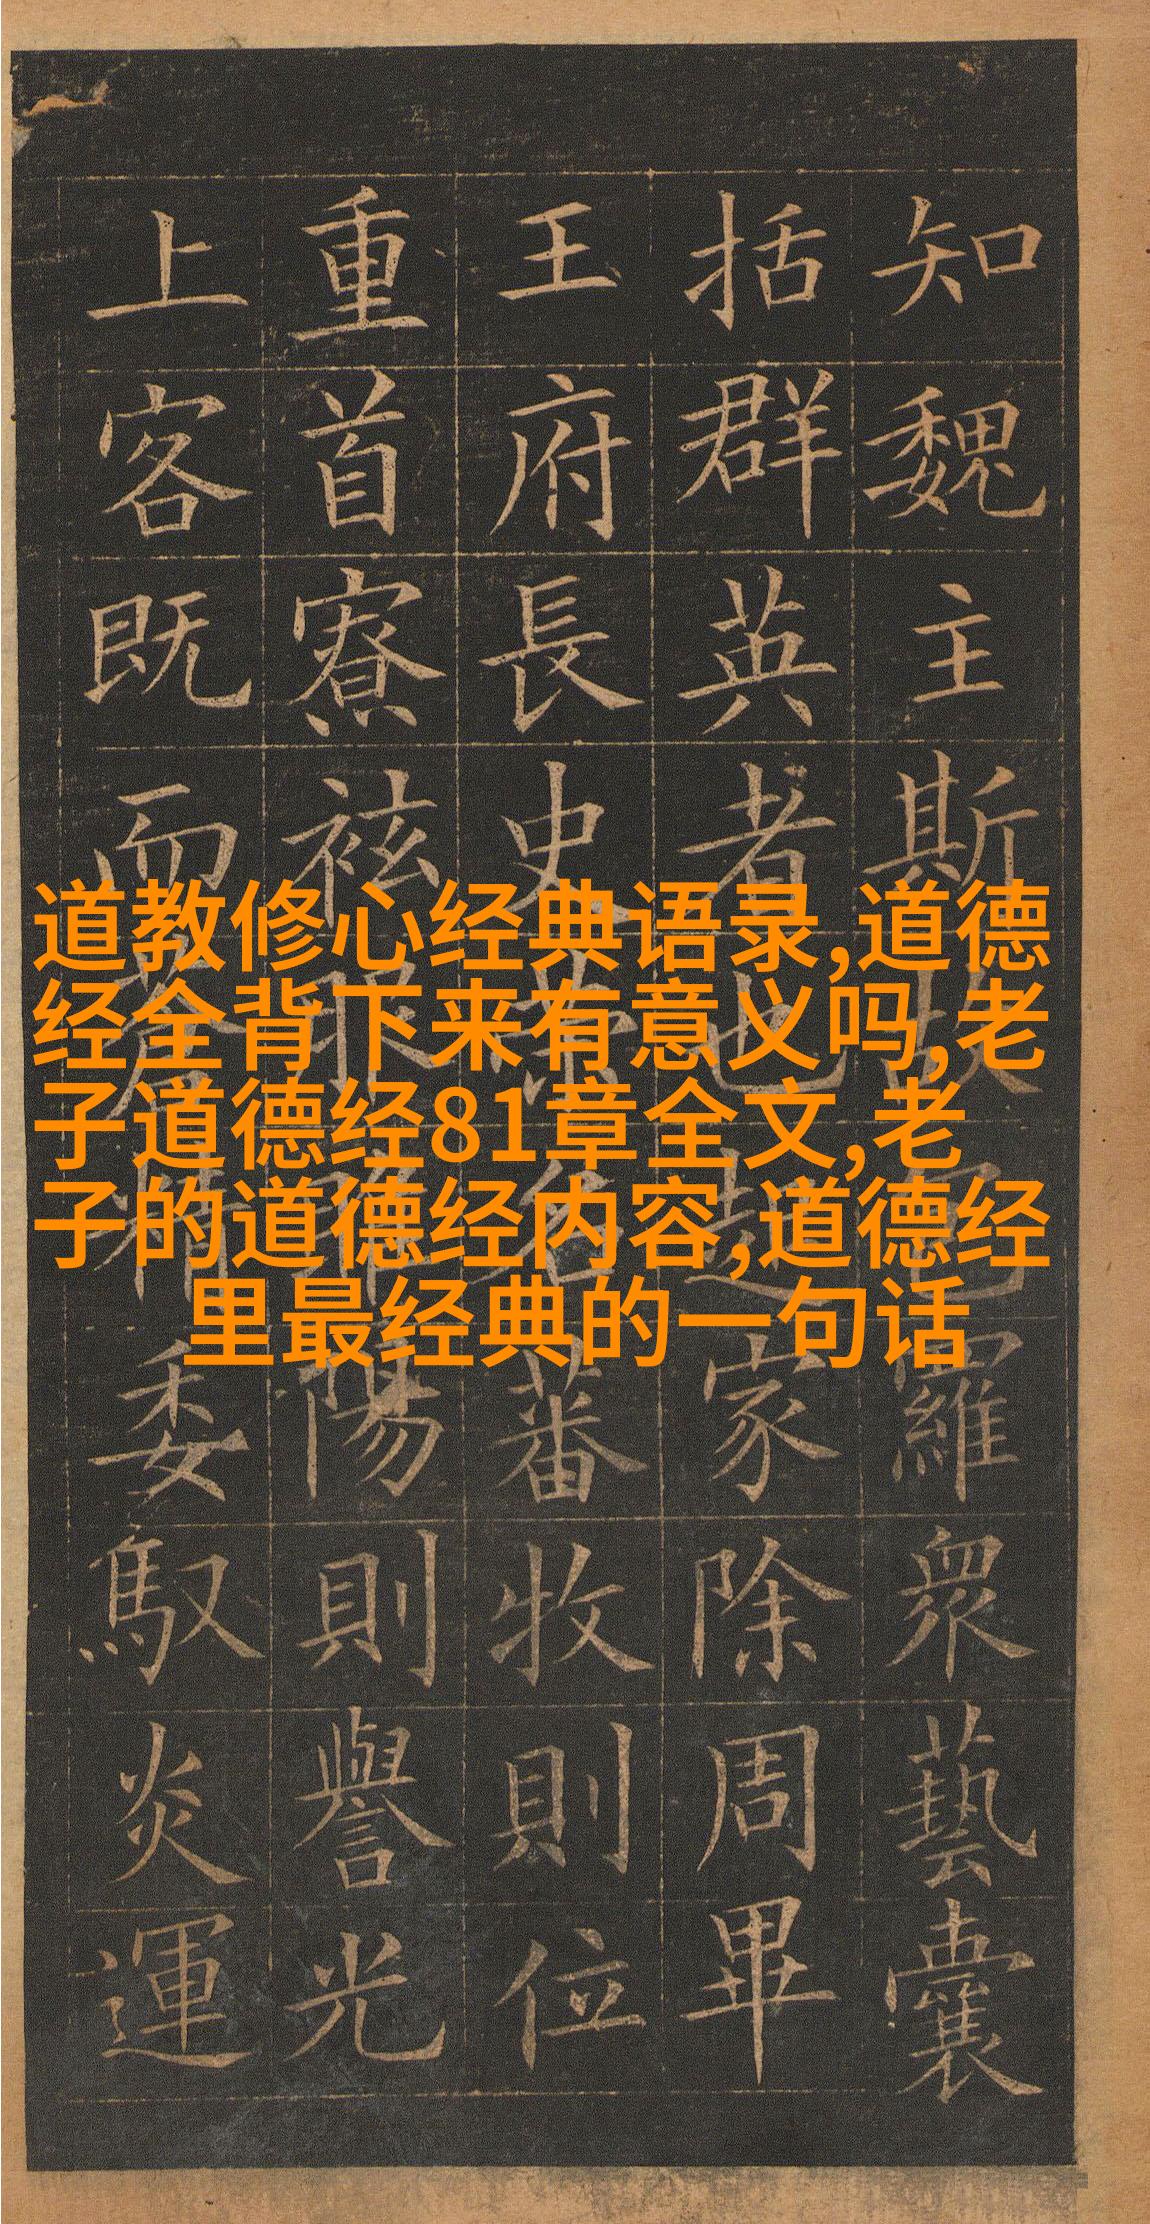 道教修心经典语录,道德
经全背下来有意义吗,老
子道德经81章全文,老
子的道德经内容,道德经
里最经典的一句话
知魏主斯故包羅衆藝囊
括群英者也起家除周畢
王府長史蕃牧則位
重首寮袨陽則譽光
上客既而蒼精委馭炎運